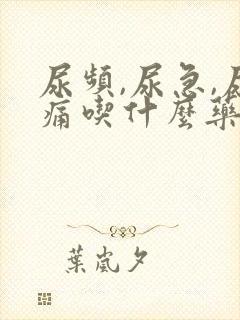 尿頻,尿急,尿
痛喫什麼藥
葉嵐夕